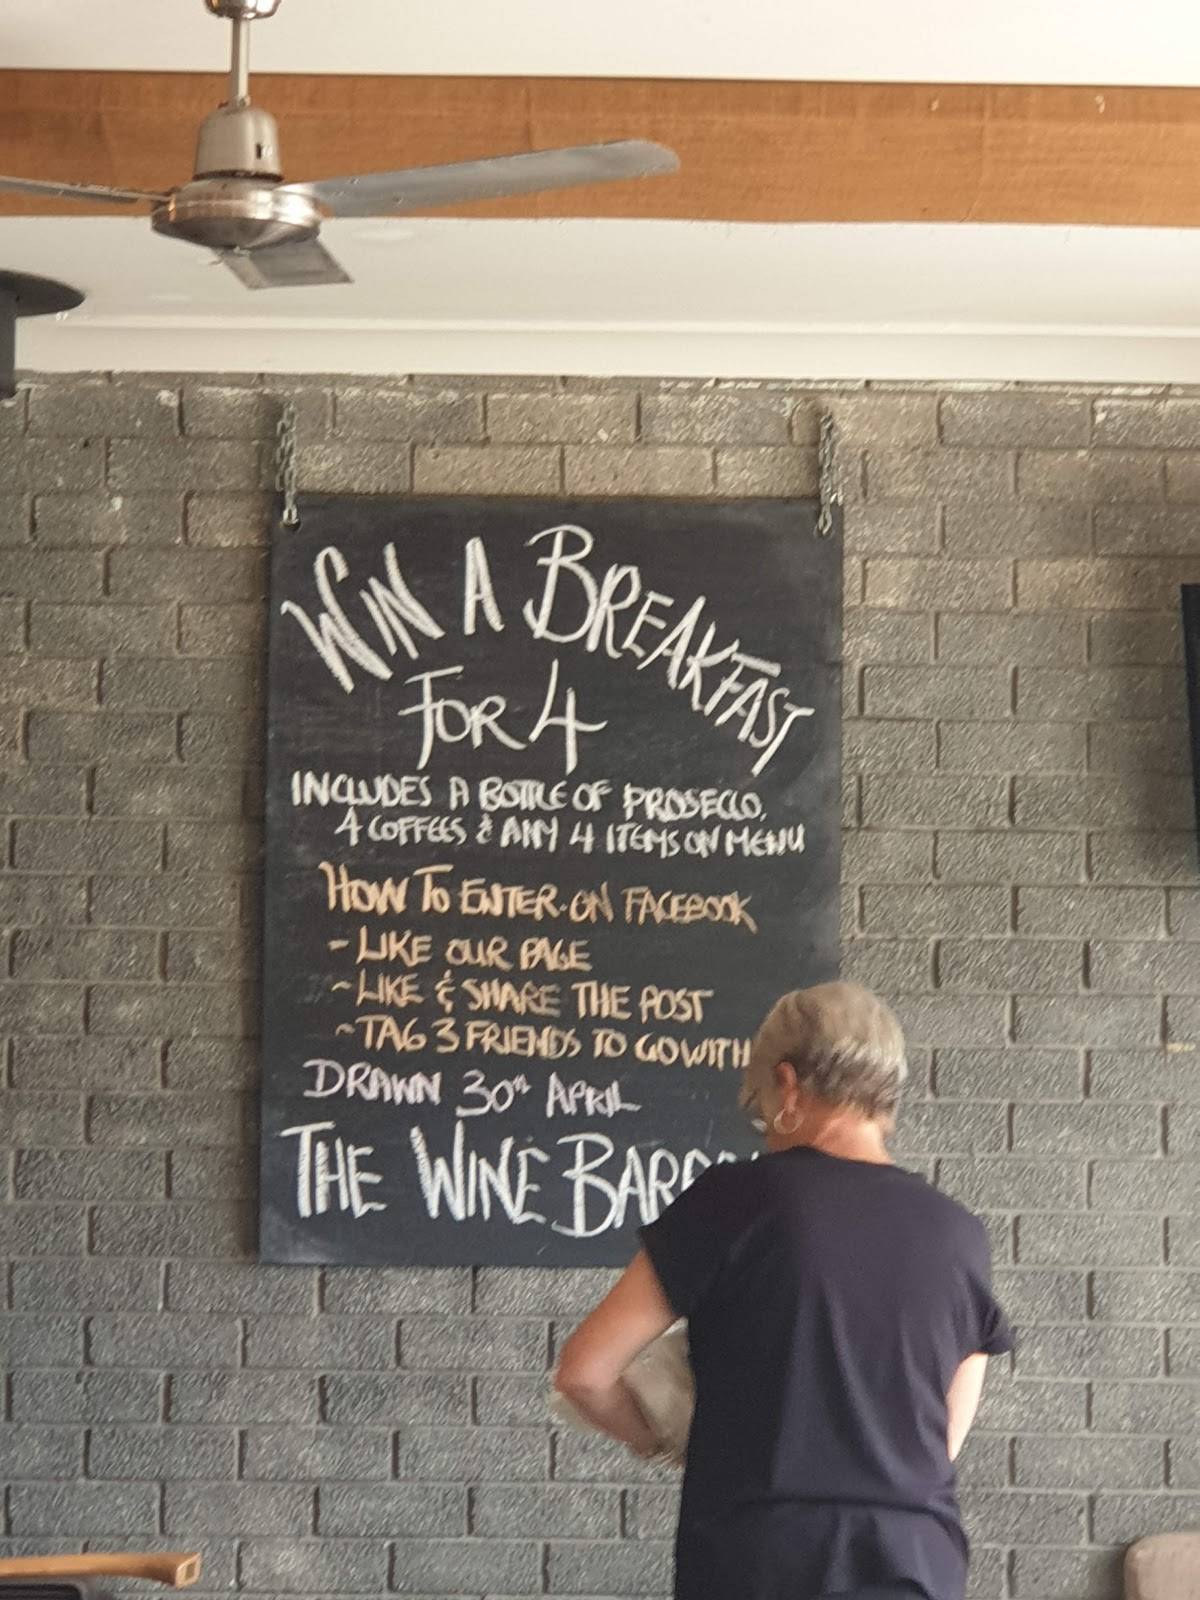 WIN A BREAKFAST
FOR 4
INCLUDES A BOTTLE OF PROSECCO,
4 COFFEES & ANY 4 ITEMS ON MENU
HOW TO ENTER - ON FACEBOOK
- LIKE OUR PAGE
- LIKE & SHARE THE POST
- TAG 3 FRIENDS TO GO WITH
DRAWN 30TH APRIL
THE WINE